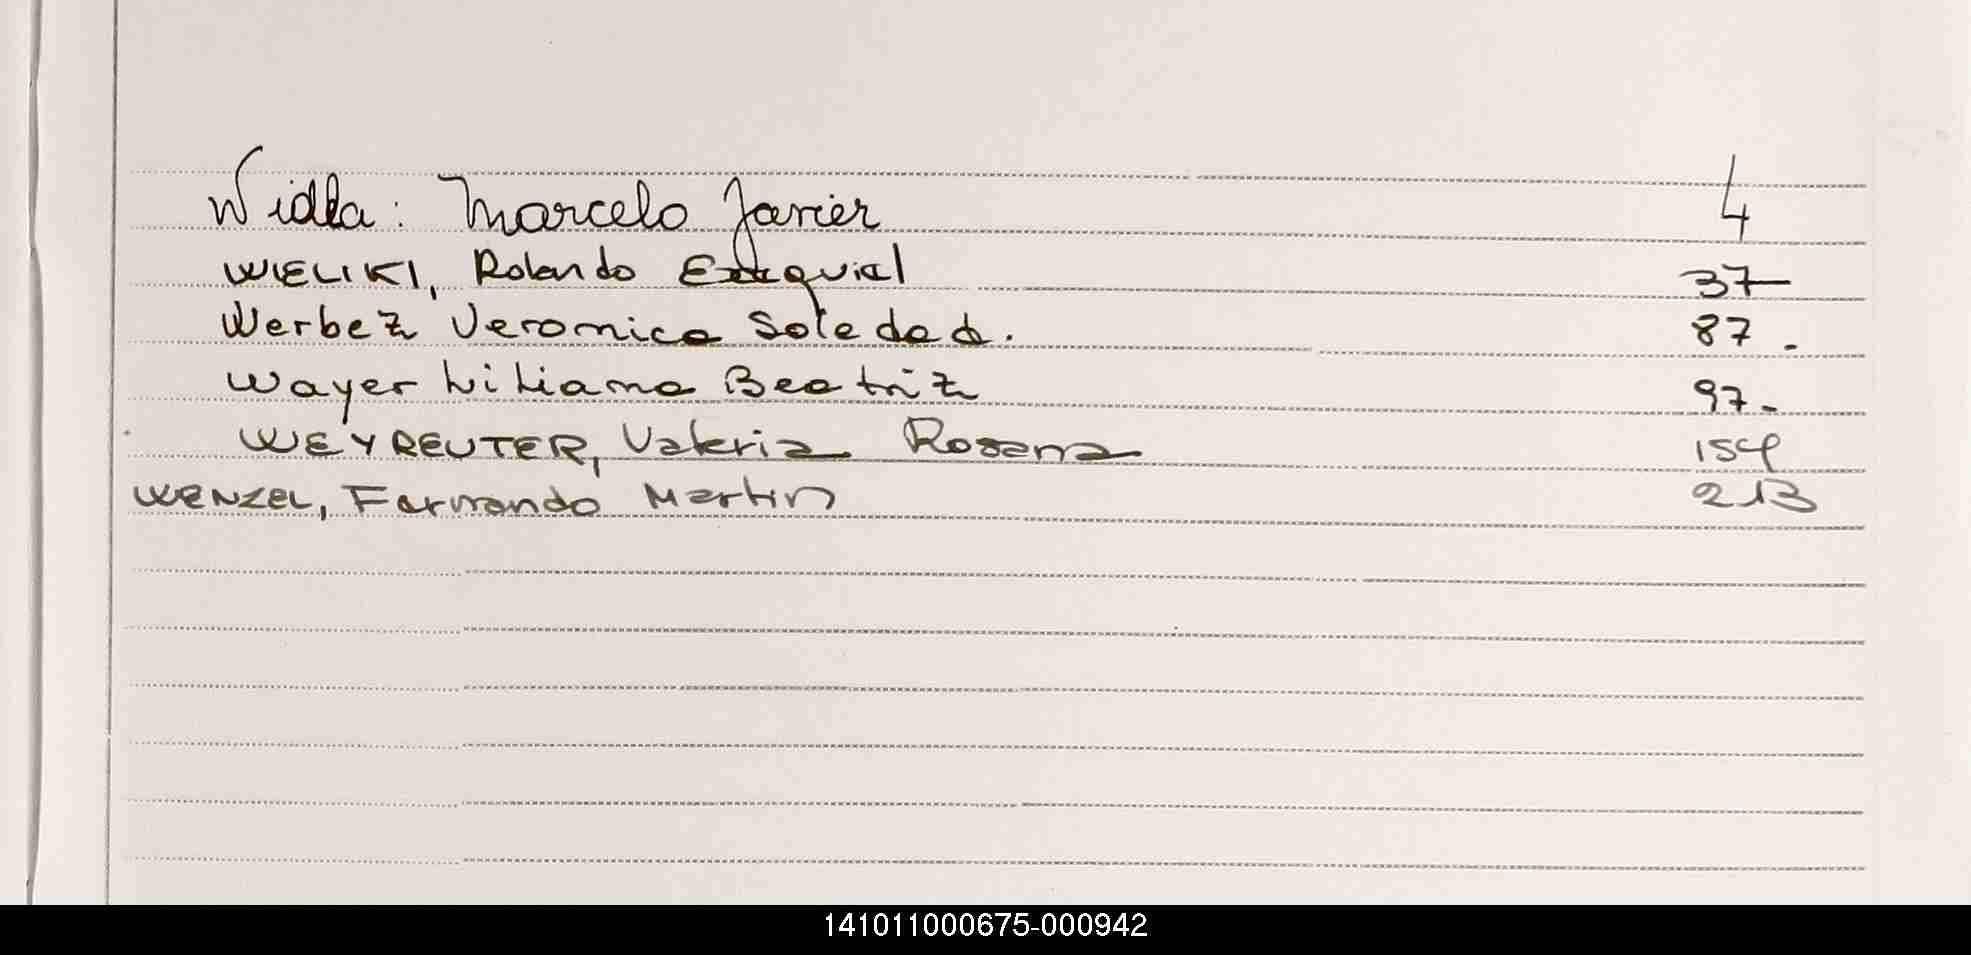 Widla: Marcelo Javier 4
WIELIKI, Rolando Exequiel 37
Werbez Veronica Soledad. 87.
Wayer Liliana Beatriz 97-
WEYREUTER, Valeria Rosana 154
WENZEL, Fernando Martin 213
141011000675-000942